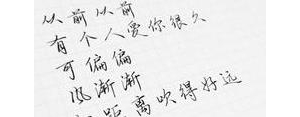 从前从前
有个人爱你很久
可偏偏
风渐渐
距离吹得好远